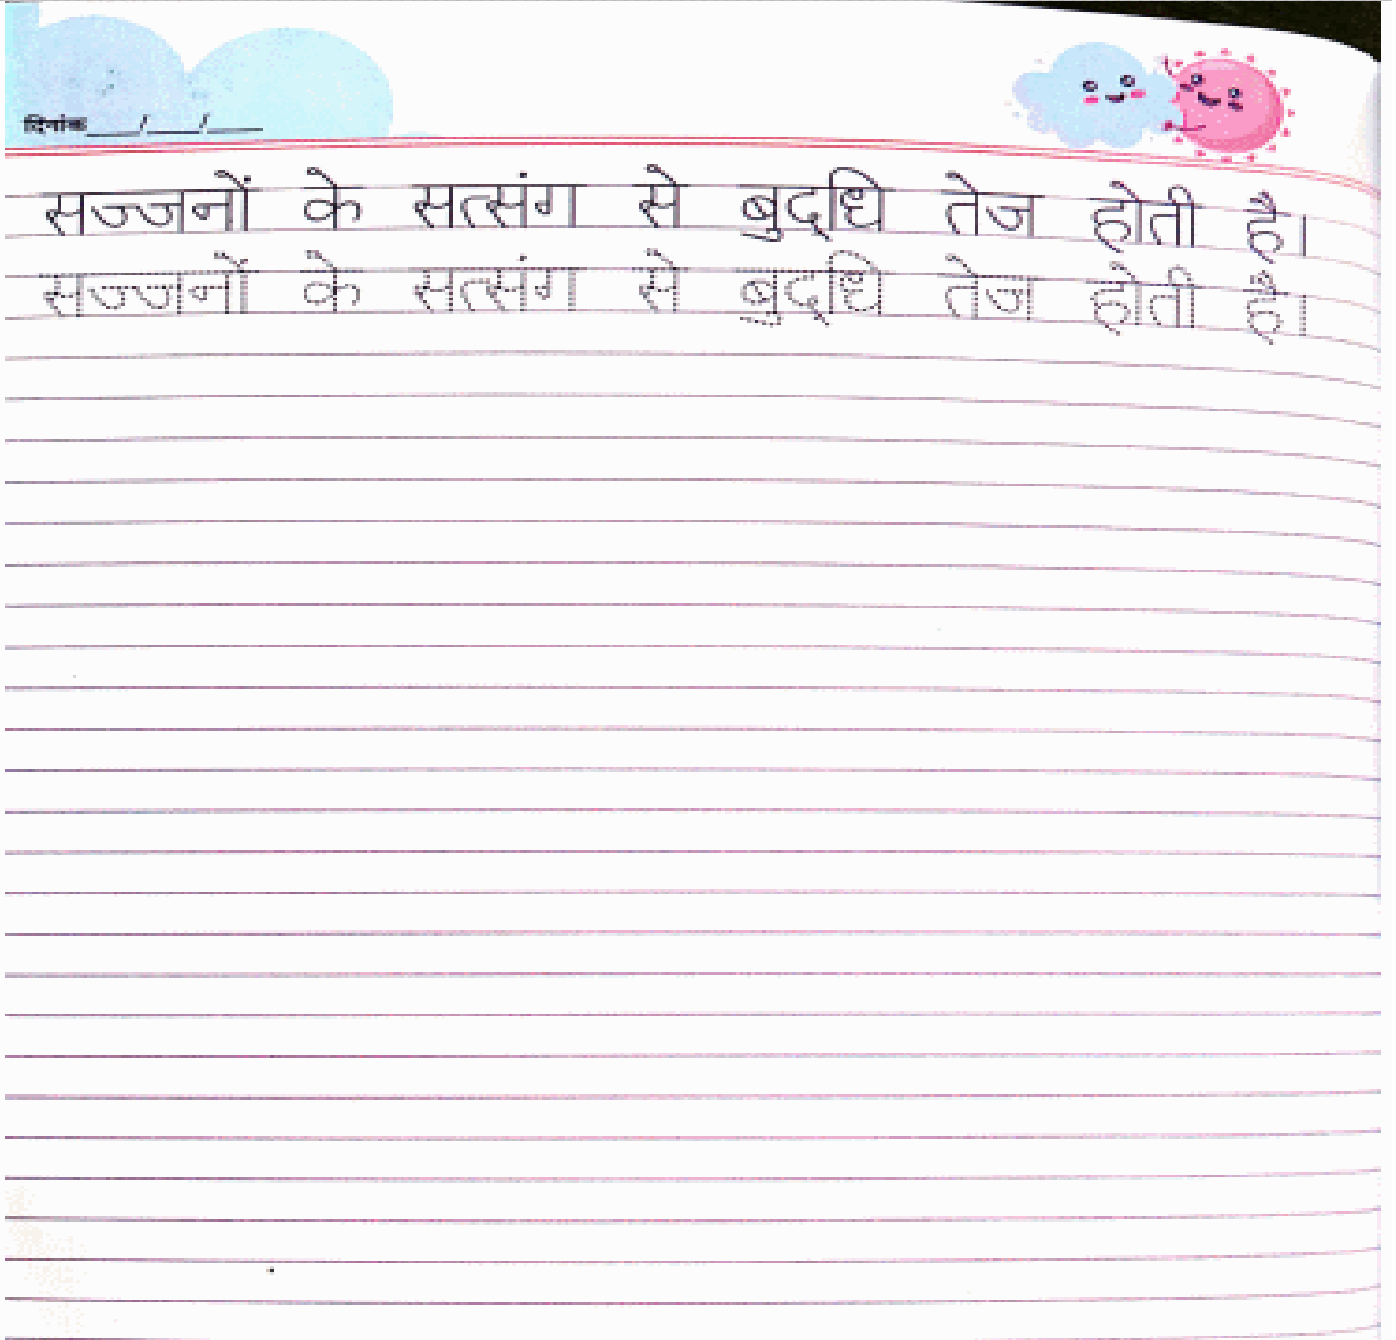 दिनांक___/___/___
सज्जनों के सत्संग से बुद्‌धि तेज होती है।
सज्जनों के सत्संग से बुद्‌धि तेज होती है।